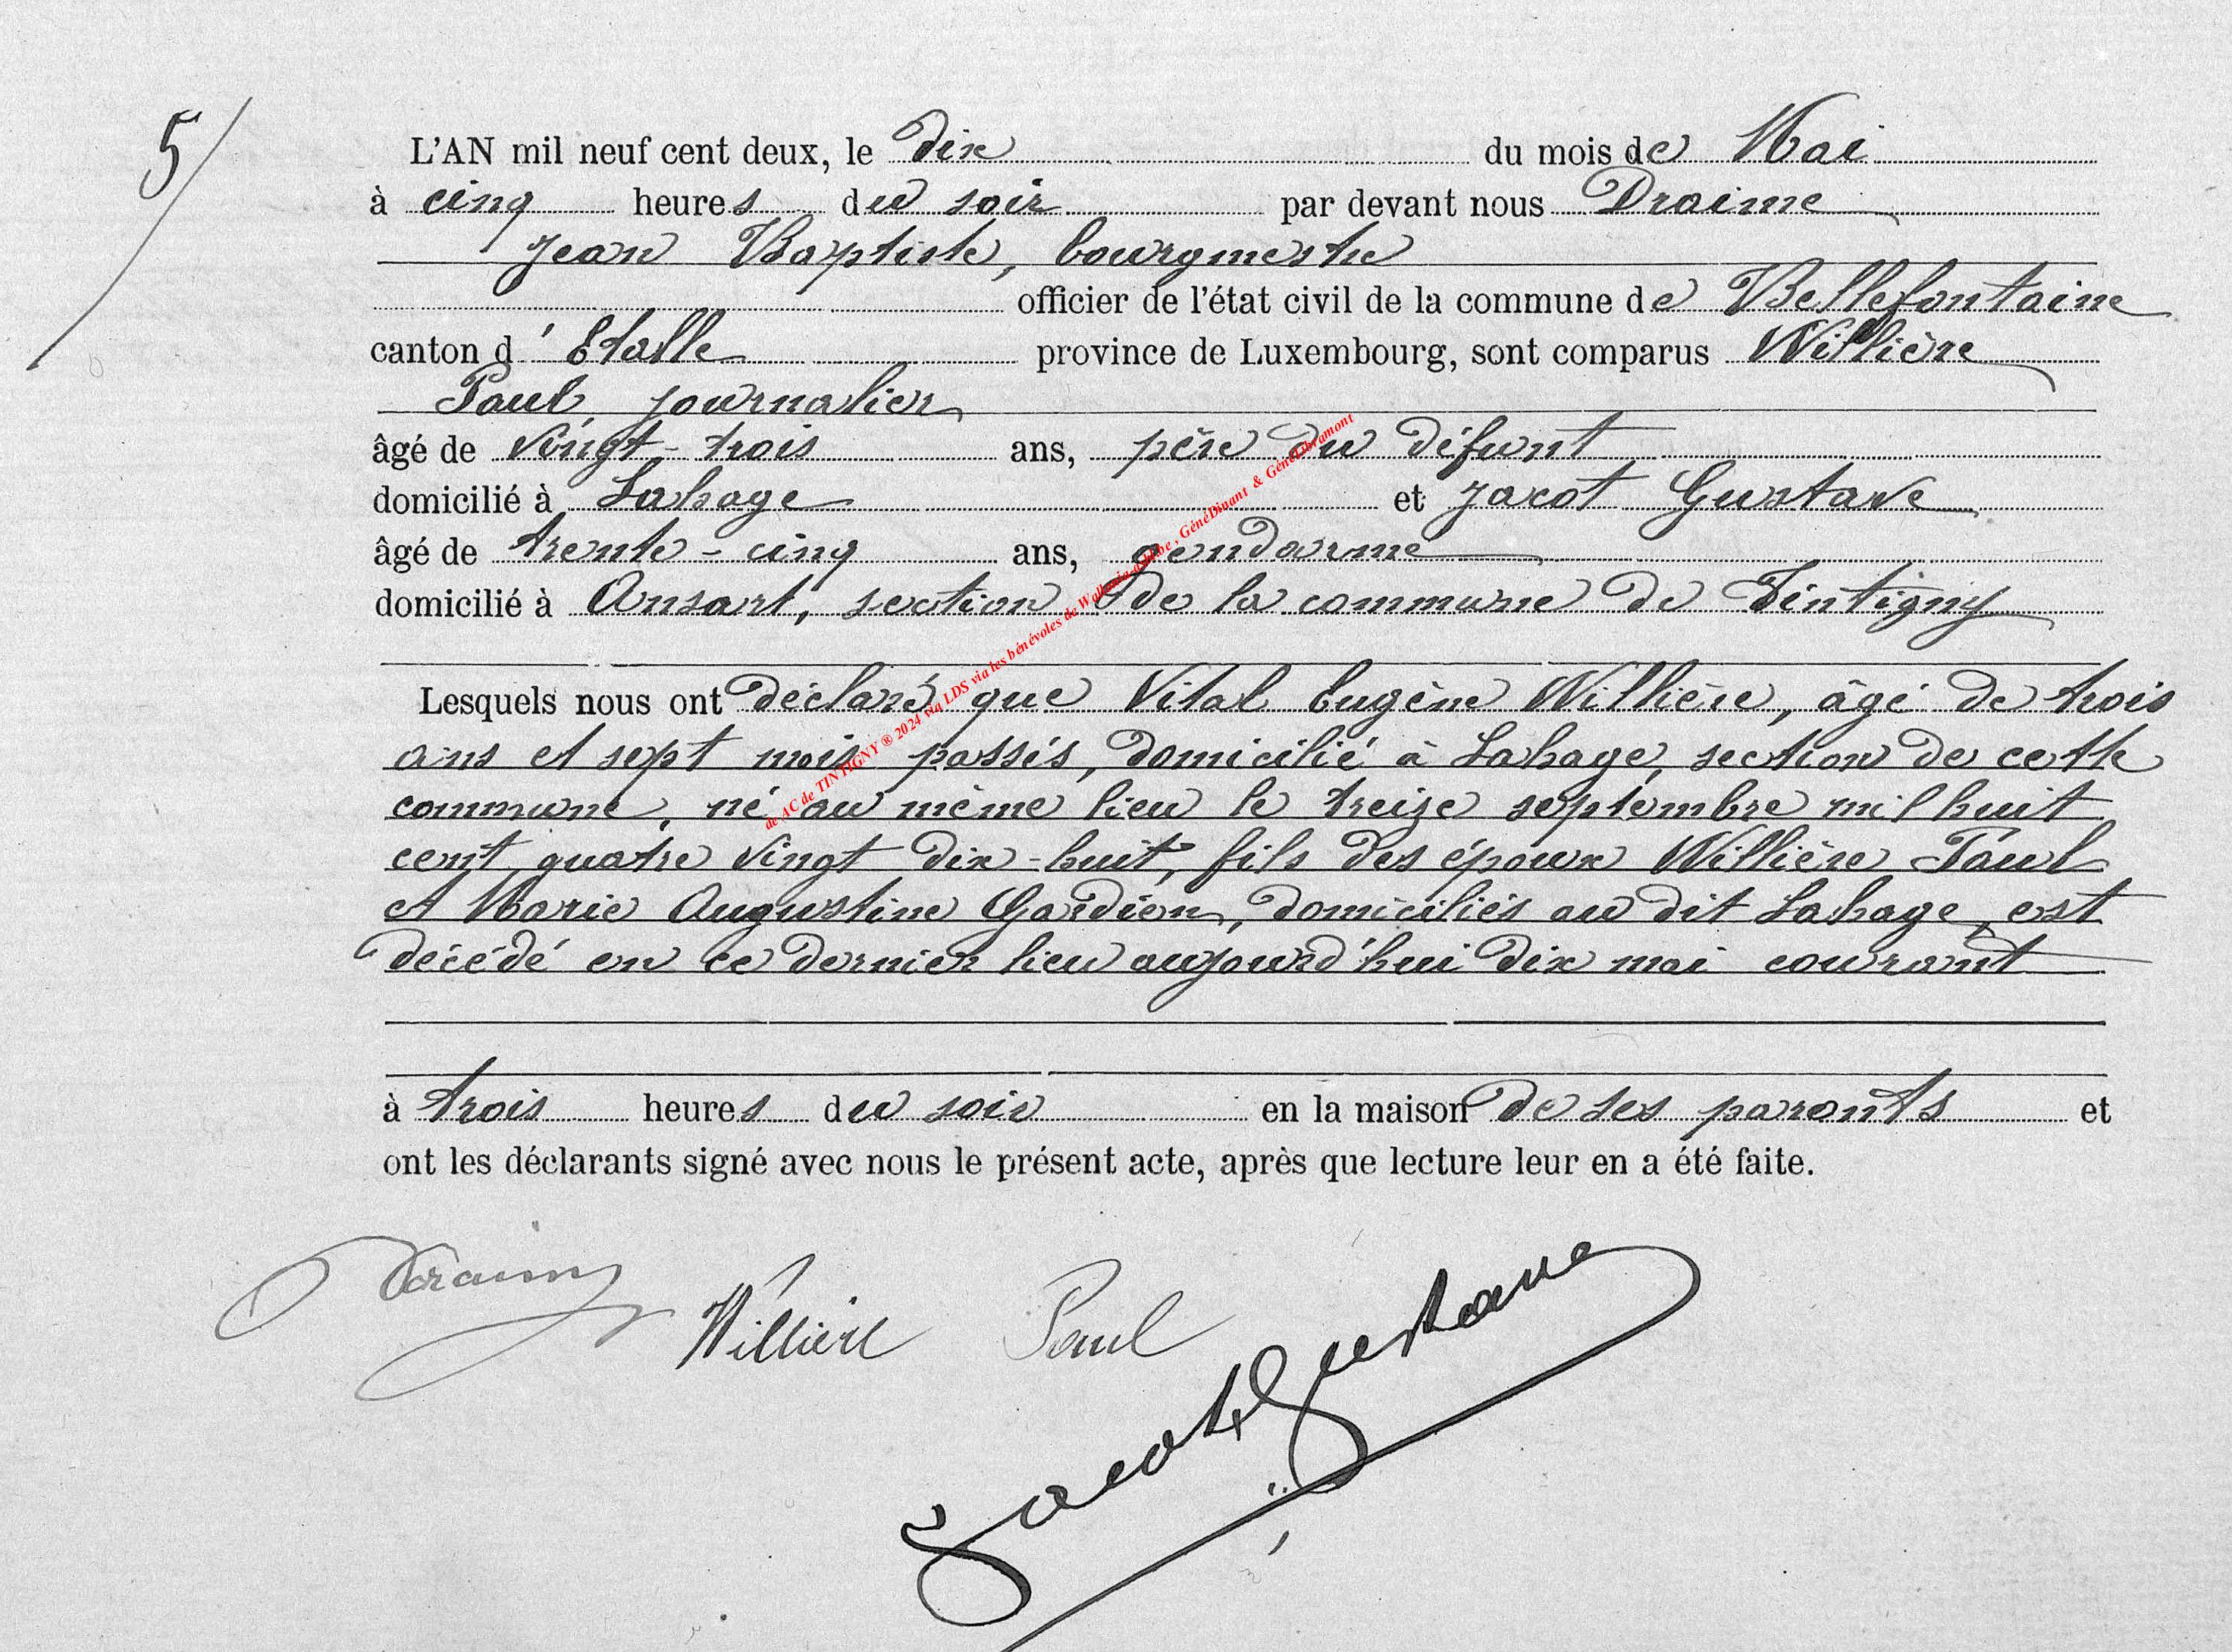 5/
L'AN mil neuf cent deux, le dix du mois de Mai
à cinq heures du soir par devant nous Draime
Jean Baptiste, bourgmestre
officier de l'état civil de la commune de Bellefontaine
canton d'Etalle province de Luxembourg, sont comparus Willière
Paul, journalier
âgé de vingt-trois ans, père du défunt
domicilié à Lahage et Jacot Gustave
âgé de trente-cinq ans, gendarme
domicilié à Ansart, section de la commune de Tintigny
Lesquels nous ont déclaré que Vital Eugène Willière, âgé de trois
ans et sept mois passés, domicilié à Lahage, section de cette
commune, né au même lieu le treize septembre mil huit
cent quatre vingt dix-huit, fils des époux Willière Paul
et Marie Augustine Gardien, domiciliés au dit Lahage, est
décédé en ce dernier lieu aujourd'hui dix mai courant
à trois heures du soir en la maison de ses parents et
ont les déclarants signé avec nous le présent acte, après que lecture leur en a été faite.
Draime
Willière Paul
Jacot Gustave
de AC de TINTIGNY ® 2024 via LDS via les bénévoles de Wallonia.asbl.be, GénéDinant & GénéLibramont